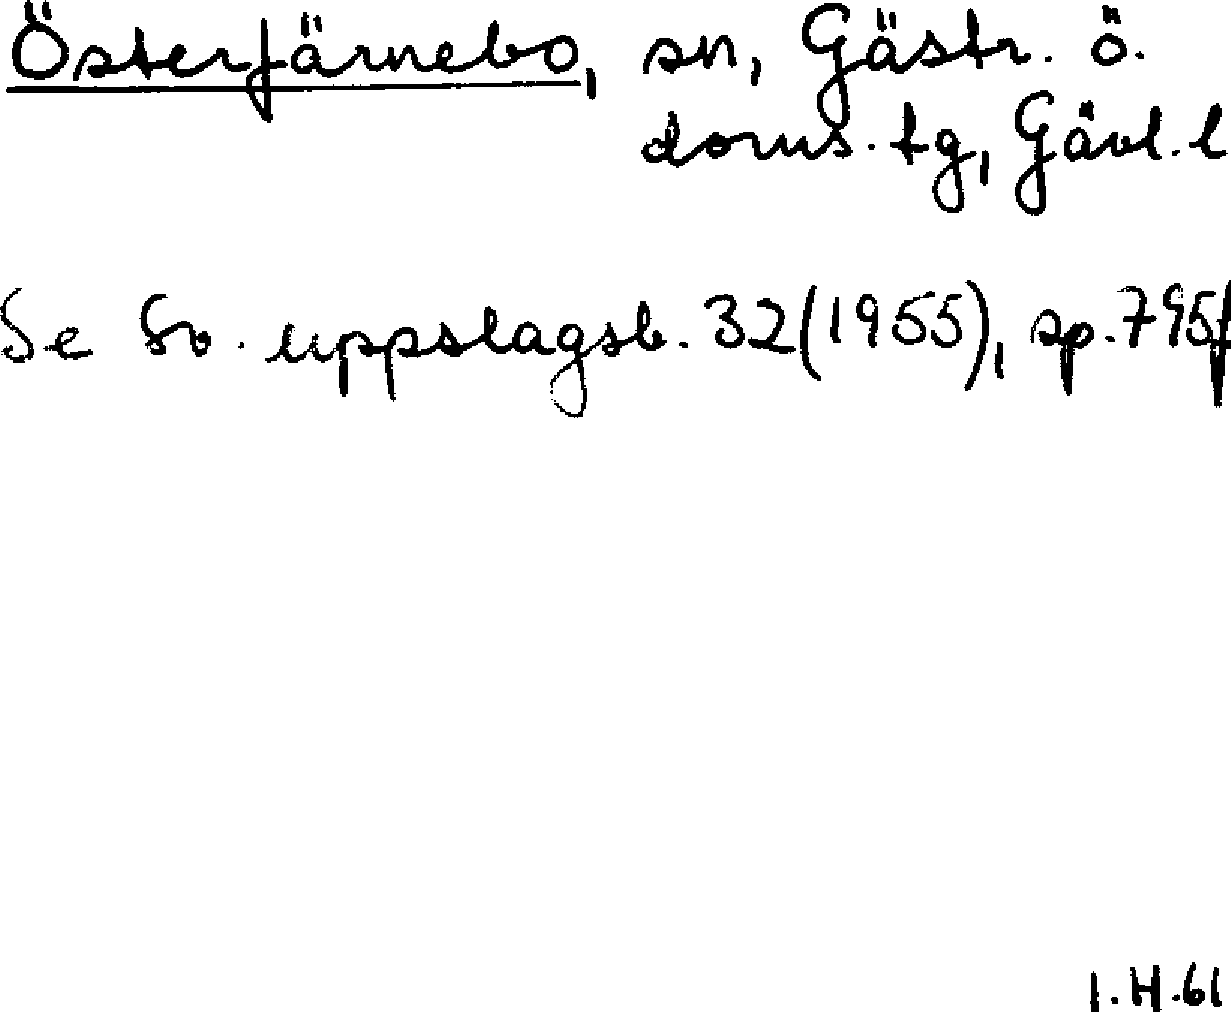 Österfärnebo, sn, Gästr. ö.
doms. tg, Gävl. l
Se Sv. uppslagsb. 32 (1955), sp. 795f
I.H.61